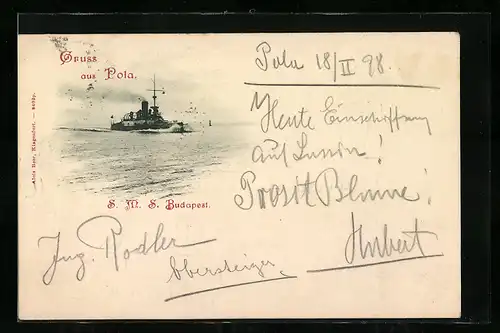 Gruss
aus Pola.
Pola 18/II 98.
Heute Einschiffung
auf Lussin!
Prosit Blume!
Hubert
S. M. S. Budapest.
Ing. Rodler
Obersteiger
Alois Beer, Klagenfurt.